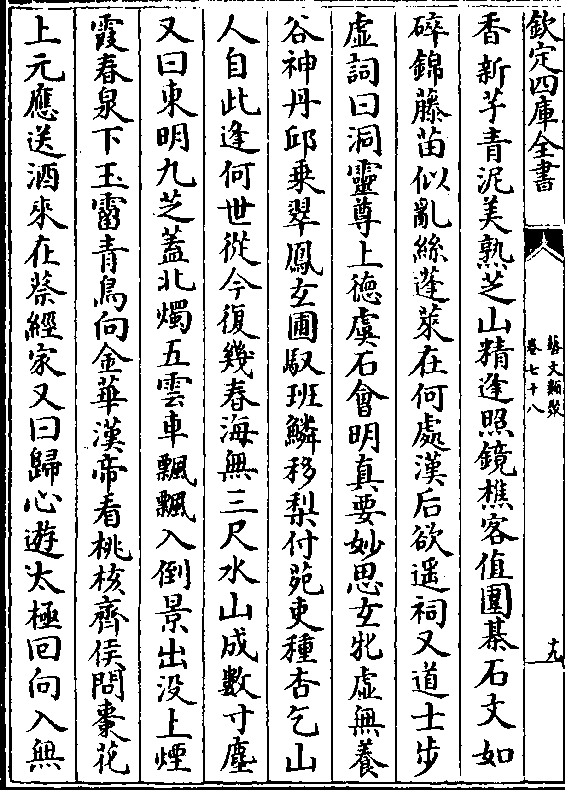 欽定四庫全書
藝文類聚
卷七十八
十九
香新芋青泥美熟芝山精逢照鏡樵客值圍棊石文如
碎錦藤苗似亂絲蓬萊在何處漢后欲遥祠又道士步
虛詞曰洞靈尊上德虞石會明真要妙思𤣥牝虛無養
谷神丹邱乗翠鳳𤣥圃馭班鱗移梨付苑吏種杏乞山
人自此逢何世從今復幾春海無三尺水山成數寸塵
又曰東明九芝蓋北燭五雲車飄飄入倒景出没上煙
霞春泉下玉霤青鳥向金華漢帝看桃核齊侯問棗花
上元應送酒來在蔡經家又曰歸心遊太極回向入無